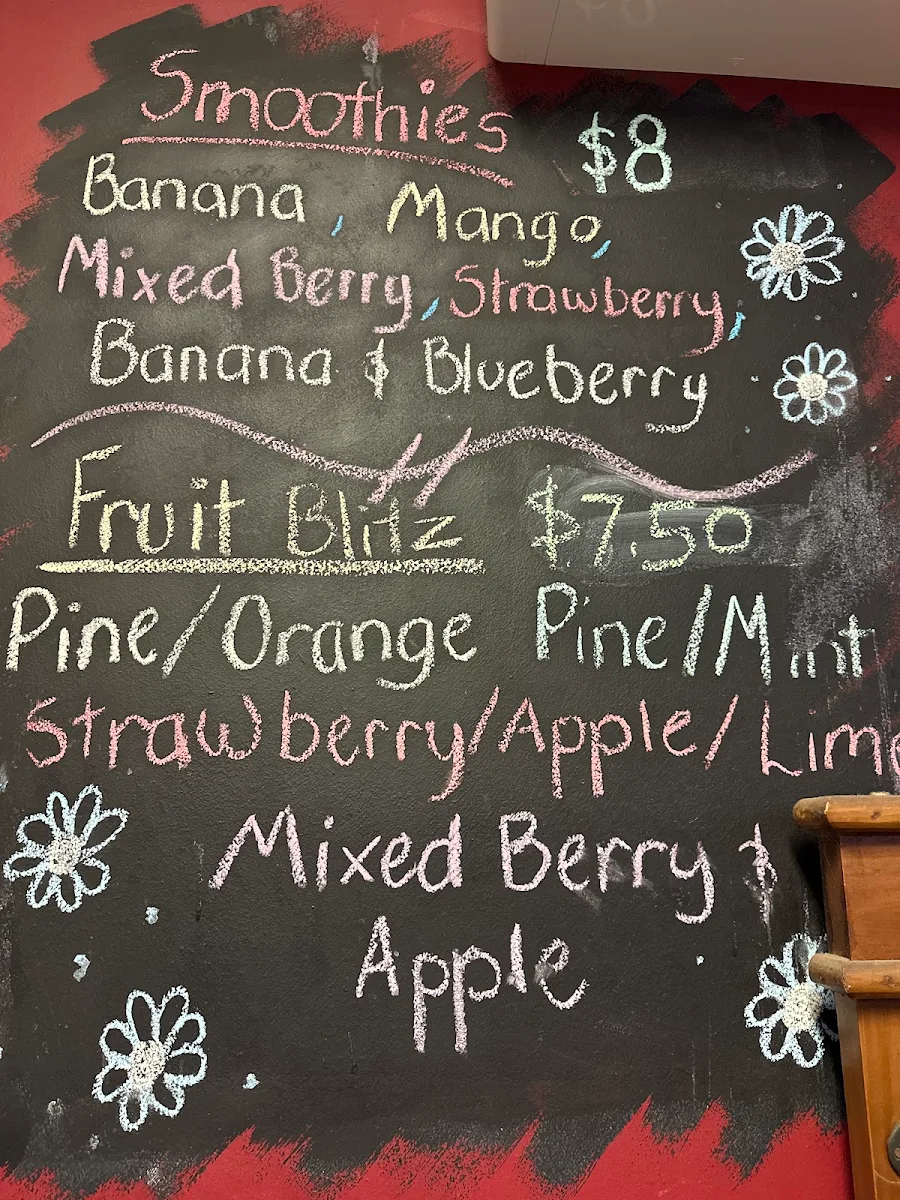 Smoothies $8
Banana, Mango,
Mixed Berry, Strawberry,
Banana & Blueberry
Fruit Blitz $7.50
Pine/Orange Pine/Mint
Strawberry/Apple/Lime
Mixed Berry &
Apple